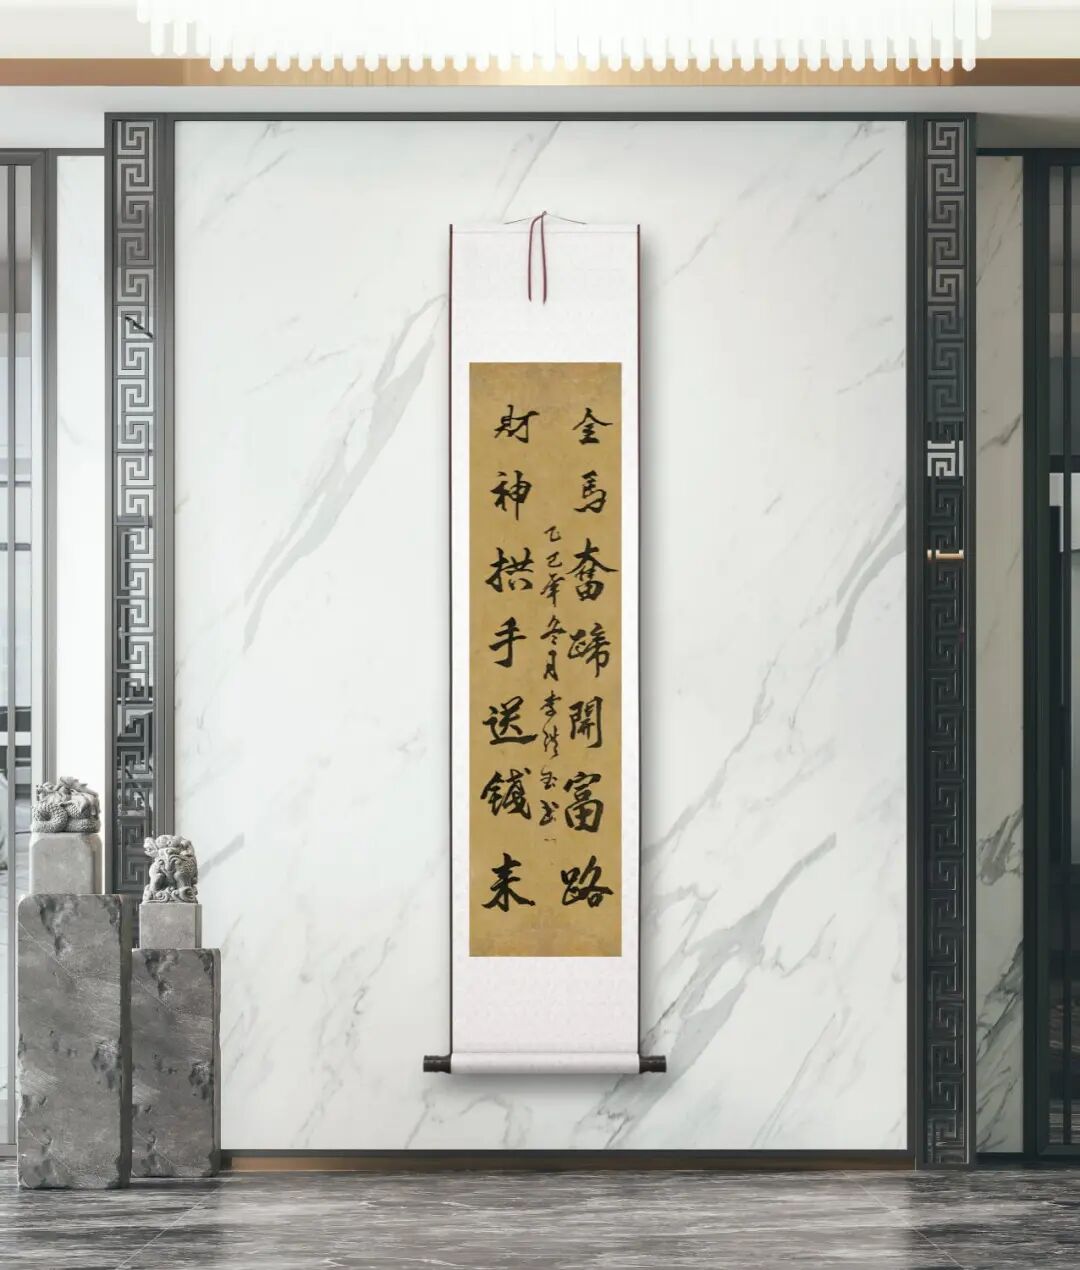 金馬奮蹄開富路
財神拱手送錢来
乙巳年冬月李